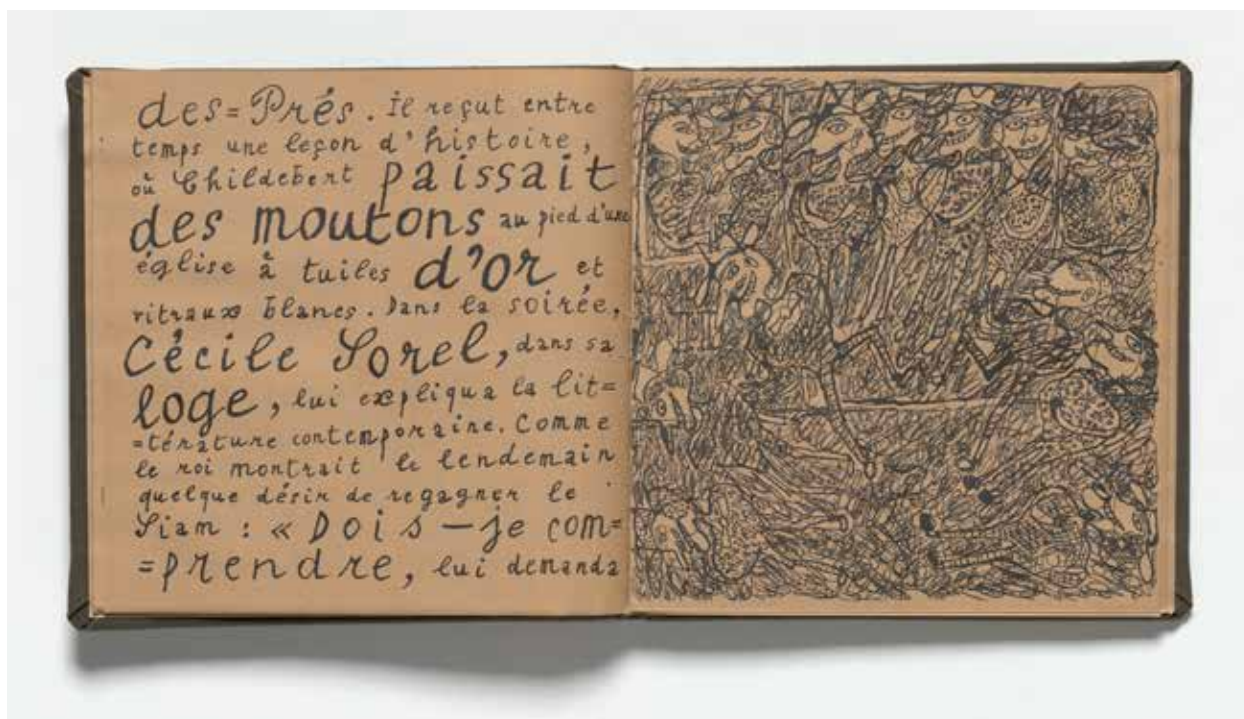 des=Prés. Il reçut entre
temps une leçon d'histoire,
où Childebert paissait
des moutons au pied d'une
église à tuiles d'or et
vitraux blancs. Dans la soirée,
Cécile Sorel, dans sa
loge, lui expliqua la lit=
=térature contemporaine. Comme
le roi montrait le lendemain
quelque désir de regagner le
Siam : « Dois-je com=
=prendre, lui demanda